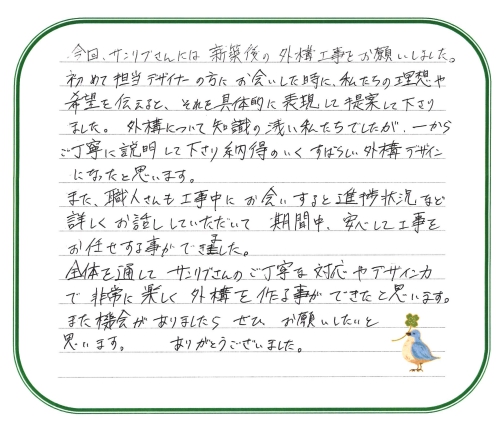 今回、サンリブさんには 新築後の 外構工事をお願いしました。
初めて担当デザイナーの方に お会いした時に、私たちの理想や
希望を伝えると、それを具体的に 表現して提案して下さり
ました。 外構について知識の浅い私たちでしたが、一から
ご丁寧に説明して下さり納得のいく すばらしい外構デザイン
になったと思います。
また、職人さんも工事中に お会いすると進捗状況など
詳しくお話ししていただいて 期間中、安心して工事を
お任せする事ができました。
全体を通して サンリブさんのご丁寧な対応やデザイン力
で 非常に楽しく 外構を作る事ができたと思います。
また機会がありましたら ぜひ お願いしたいと
思います。 ありがとうございました。